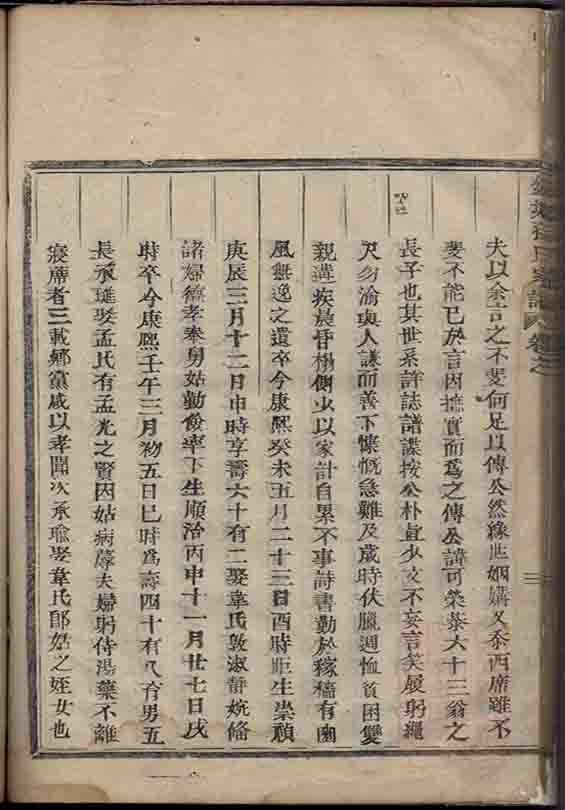 夫以余言之不斐何足以傳公然緣世姻媾又忝西席雖不
斐不能已於言因摭實而爲之傳公諱可榮葵六十三翁之
長子也其世系詳誌譜諜按公朴直少文不妄言笑履躬繩
尺勿渝與人謙而善下慷慨急難及歲時伏臘週恤貧困雙
親遘疾晨昏榻側少以家計自累不事詩書勤於稼穡有豳
風無逸之遺卒今康熙癸未五月二十三日酉時距生崇禎
庚辰三月十二日申時享壽六十有二娶韋氏敦淑靜婉脩
諸婦德孝奉舅姑勤儉率下生順治丙申十一月廿七日戌
時卒今康熙壬午三月初五日巳時爲壽四十有八育男五
長承璡娶孟氏有孟光之賢因姑病蓐夫婦躬侍湯藥不離
寢蓆者三載鄉黨咸以孝聞次承瑜娶韋氏郎姑之姪女也